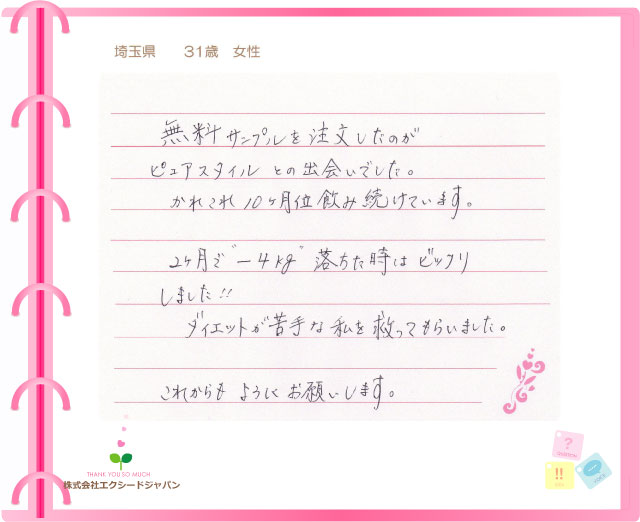 埼玉県　31歳　女性
無料サンプルを注文したのが
ピュアスタイルとの出会いでした。
かれこれ10ヶ月位飲み続けています。
2ヶ月で"－4kg"落ちた時はビックリ
しました!!
ダイエットが苦手な私を救ってもらいました。
これからも ようしく お願いします。
THANK YOU SO MUCH
株式会社エクシードジャパン
?
!!